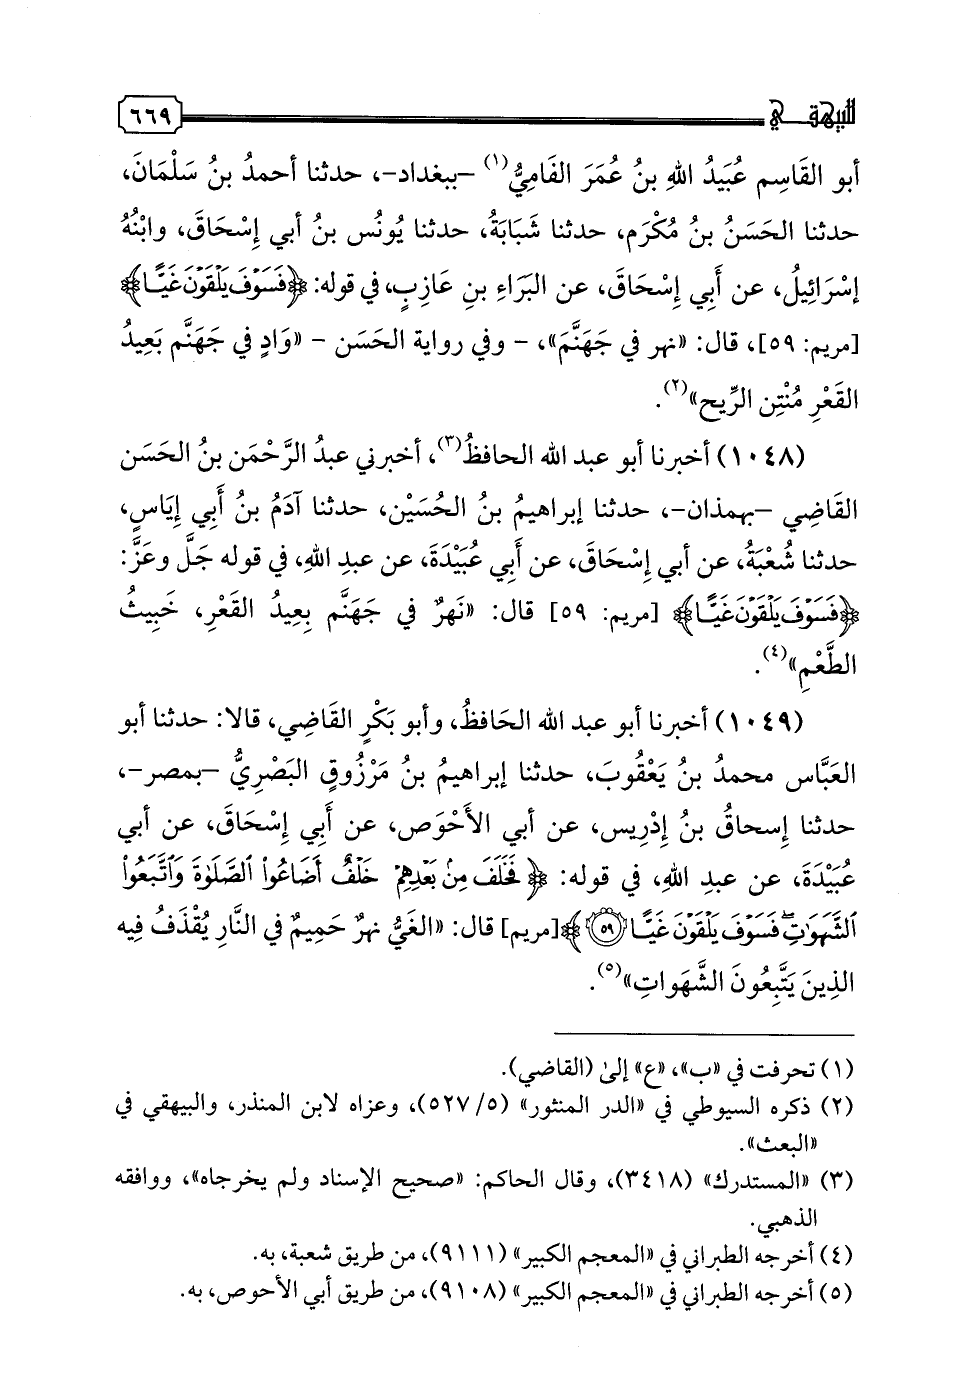 للبيهقي ٦٦٩
أبو القَاسِم عُبَيدُ اللهِ بنُ عُمَرَ الفَامِيُّ(١) –ببغداد–، حدثنا أحمدُ بنُ سَلْمَانَ،
حدثنا الحَسَنُ بنُ مُكْرَم، حدثنا شَبَابَةُ، حدثنا يُونُس بنُ أبي إِسْحَاقَ، وابْنُهُ
إِسْرَائِيلُ، عن أَبِي إِسْحَاقَ، عن البَرَاءِ بنِ عَازِبٍ، في قوله: ﴿فَسَوْفَ يَلْقَوْنَ غَيًّا﴾
[مريم: ٥٩]، قال: «نهر في جَهَنَّمَ»، – وفي رواية الحَسَن – «وَادٍ في جَهَنَّم بَعِيدُ
القَعْرِ مُنْتِن الرِّيح»(٢).
(١٠٤٨) أخبرنا أبو عبد الله الحافظُ(٣)، أخبرني عبدُ الرَّحْمَن بنُ الحَسَن
القَاضِي –بهمذان–، حدثنا إبراهيمُ بنُ الحُسَيْن، حدثنا آدَمُ بنُ أَبِي إِيَاسٍ،
حدثنا شُعْبَةُ، عن أبي إِسْحَاقَ، عن أَبِي عُبَيْدَةَ، عن عبدِ اللهِ، في قوله جَلَّ وعَزَّ:
﴿فَسَوْفَ يَلْقَوْنَ غَيًّا﴾ [مريم: ٥٩] قال: «نَهرٌ في جَهَنَّم بِعِيدُ القَعْرِ، خَبِيثُ
الطَّعْمِ»(٤).
(١٠٤٩) أخبرنا أبو عبد الله الحَافظُ، وأبو بَكْرٍ القَاضِي، قالا: حدثنا أبو
العَبَّاس محمدُ بنُ يَعْقُوبَ، حدثنا إبراهيمُ بنُ مَرْزُوقٍ البَصْرِيُّ –بمصر–،
حدثنا إِسحاقُ بنُ إِدْرِيس، عن أبي الأَحْوَص، عن أَبِي إِسْحَاقَ، عن أبي
عُبَيْدَةَ، عن عبدِ اللهِ، في قوله: ﴿فَخَلَفَ مِنۢ بَعْدِهِمْ خَلْفٌ أَضَاعُوا۟ ٱلصَّلَوٰةَ وَٱتَّبَعُوا۟
ٱلشَّهَوَٰتِ ۖ فَسَوْفَ يَلْقَوْنَ غَيًّا ٥٩﴾ [مريم] قال: «الغَيُّ نهرٌ حَمِيمٌ في النَّارِ يُقْذَفُ فِيه
الذِينَ يَتَّبِعُونَ الشَّهَواتِ»(٥).
(١) تحرفت في «ب»، «ع» إلىٰ (القاضي).
(٢) ذكره السيوطي في «الدر المنثور» (٥/ ٥٢٧)، وعزاه لابن المنذر، والبيهقي في
«البعث».
(٣) «المستدرك» (٣٤١٨)، وقال الحاكم: «صحيح الإسناد ولم يخرجاه»، ووافقه
الذهبي.
(٤) أخرجه الطبراني في «المعجم الكبير» (٩١١١)، من طريق شعبة، به.
(٥) أخرجه الطبراني في «المعجم الكبير» (٩١٠٨)، من طريق أبي الأحوص، به.